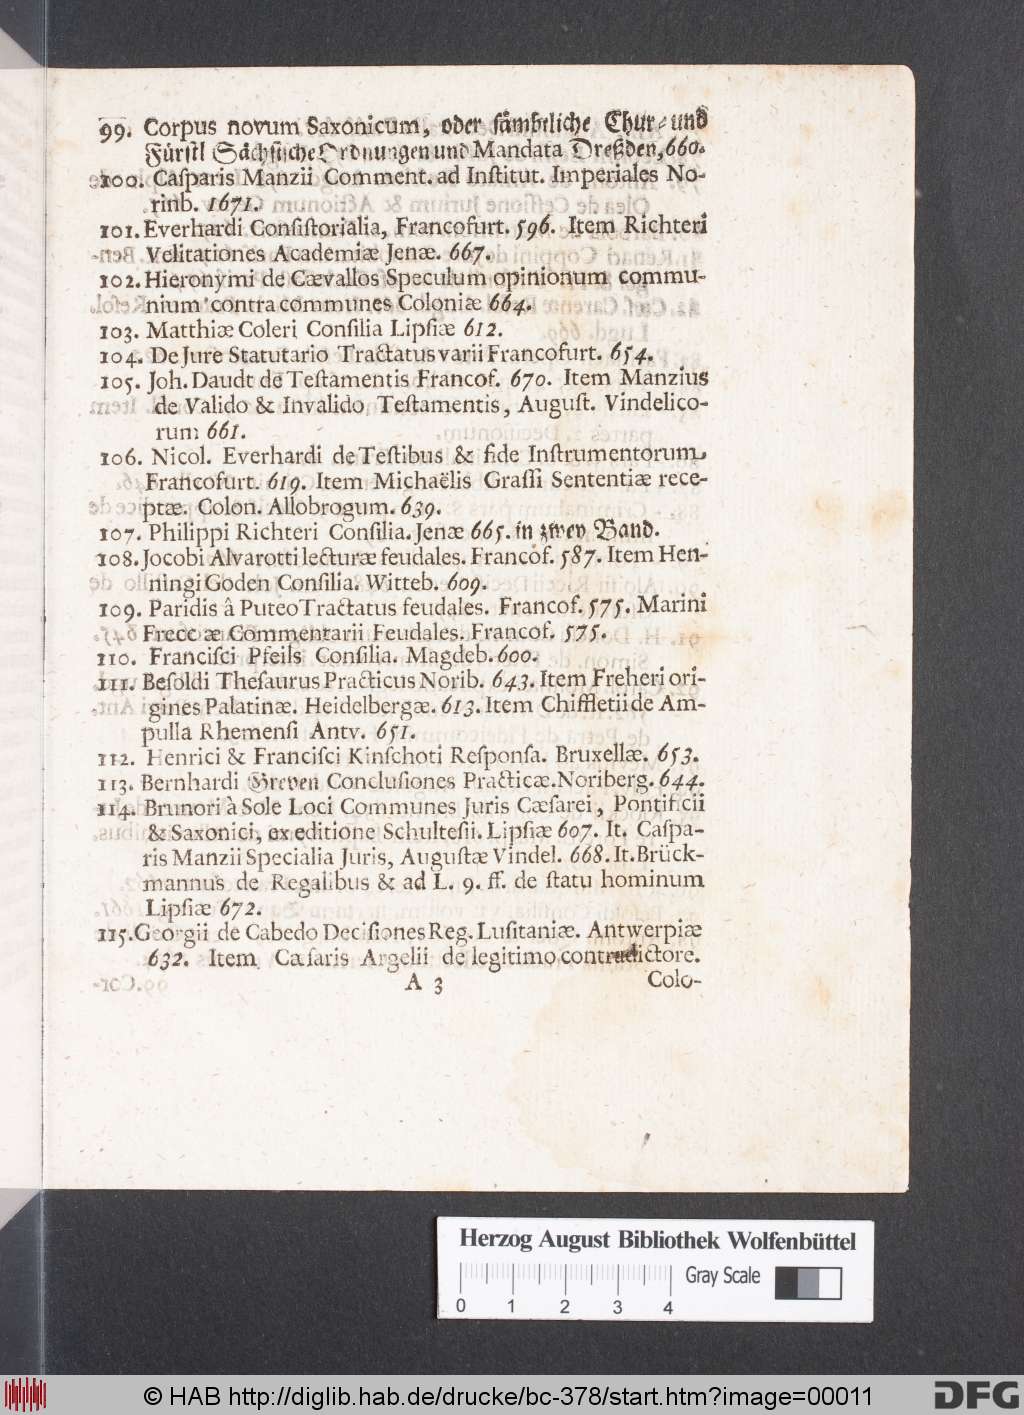 99. Corpus novum Saxonicum, oder sämbtliche Chur- und
Fürstl Sächsische Ordnungen und Mandata Dreßden, 660.
100. Casparis Manzii Comment. ad Institut. Imperiales No-
rinb. 1671.
101. Everhardi Consistorialia, Francofurt. 596. Item Richteri
Velitationes Academiæ Jenæ. 667.
102. Hieronymi de Cævallos Speculum opinionum commu-
nium contra communes Coloniæ 664.
103. Matthiæ Coleri Consilia Lipsiæ 612.
104. De Jure Statutario Tractatus varii Francofurt. 654.
105. Joh. Daudt de Testamentis Francof. 670. Item Manzius
de Valido & Invalido Testamentis, August. Vindelico-
rum 661.
106. Nicol. Everhardi de Testibus & fide Instrumentorum
Francofurt. 619. Item Michaëlis Grassi Sententiæ rece-
ptæ. Colon. Allobrogum. 639.
107. Philippi Richteri Consilia. Jenæ 665. in zwey Band.
108. Jocobi Alvarotti lecturæ feudales. Francof. 587. Item Hen-
ningi Goden Consilia. Witteb. 609.
109. Paridis â Puteo Tractatus feudales. Francof. 575. Marini
Frecc æ Commentarii Feudales. Francof. 575.
110. Francisci Pfeils Consilia. Magdeb. 600.
111. Besoldi Thesaurus Practicus Norib. 643. Item Freheri ori-
gines Palatinæ. Heidelbergæ. 613. Item Chiffletii de Am-
pulla Rhemensi Antv. 651.
112. Henrici & Francisci Kinschoti Responsa. Bruxellæ. 653.
113. Bernhardi Greven Conclusiones Practicæ. Noriberg. 644.
114. Brunori à Sole Loci Communes Juris Cæsarei, Pontificii
& Saxonici, ex editione Schultesii. Lipsiæ 607. It. Caspa-
ris Manzii Specialia Juris, Augustæ Vindel. 668. It. Brück-
mannus de Regalibus & ad L. 9. ff. de statu hominum
Lipsiæ 672.
115. Georgii de Cabedo Decisiones Reg. Lusitaniæ. Antwerpiæ
632. Item Cæsaris Argelii de legitimo contradictore.
A 3 Colo-
Herzog August Bibliothek Wolfenbüttel
Gray Scale
0 1 2 3 4
© HAB http://diglib.hab.de/drucke/bc-378/start.htm?image=00011
DFG